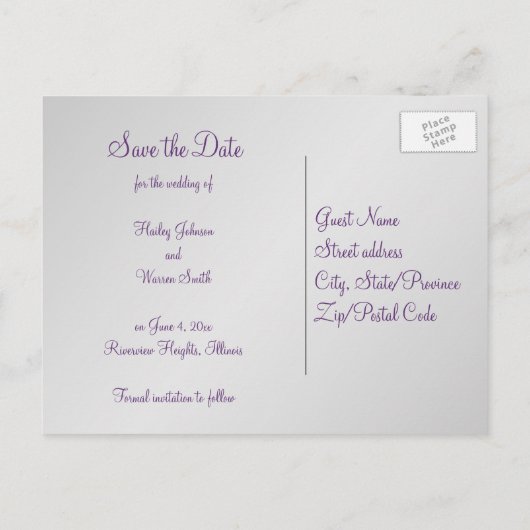 Save the Date
for the wedding of
Hailey Johnson
and
Warren Smith
on June 4, 20xx
Riverview Heights, Illinois
Formal invitation to follow
Place
Stamp
Here
Guest Name
Street address
City, State/Province
Zip/Postal Code